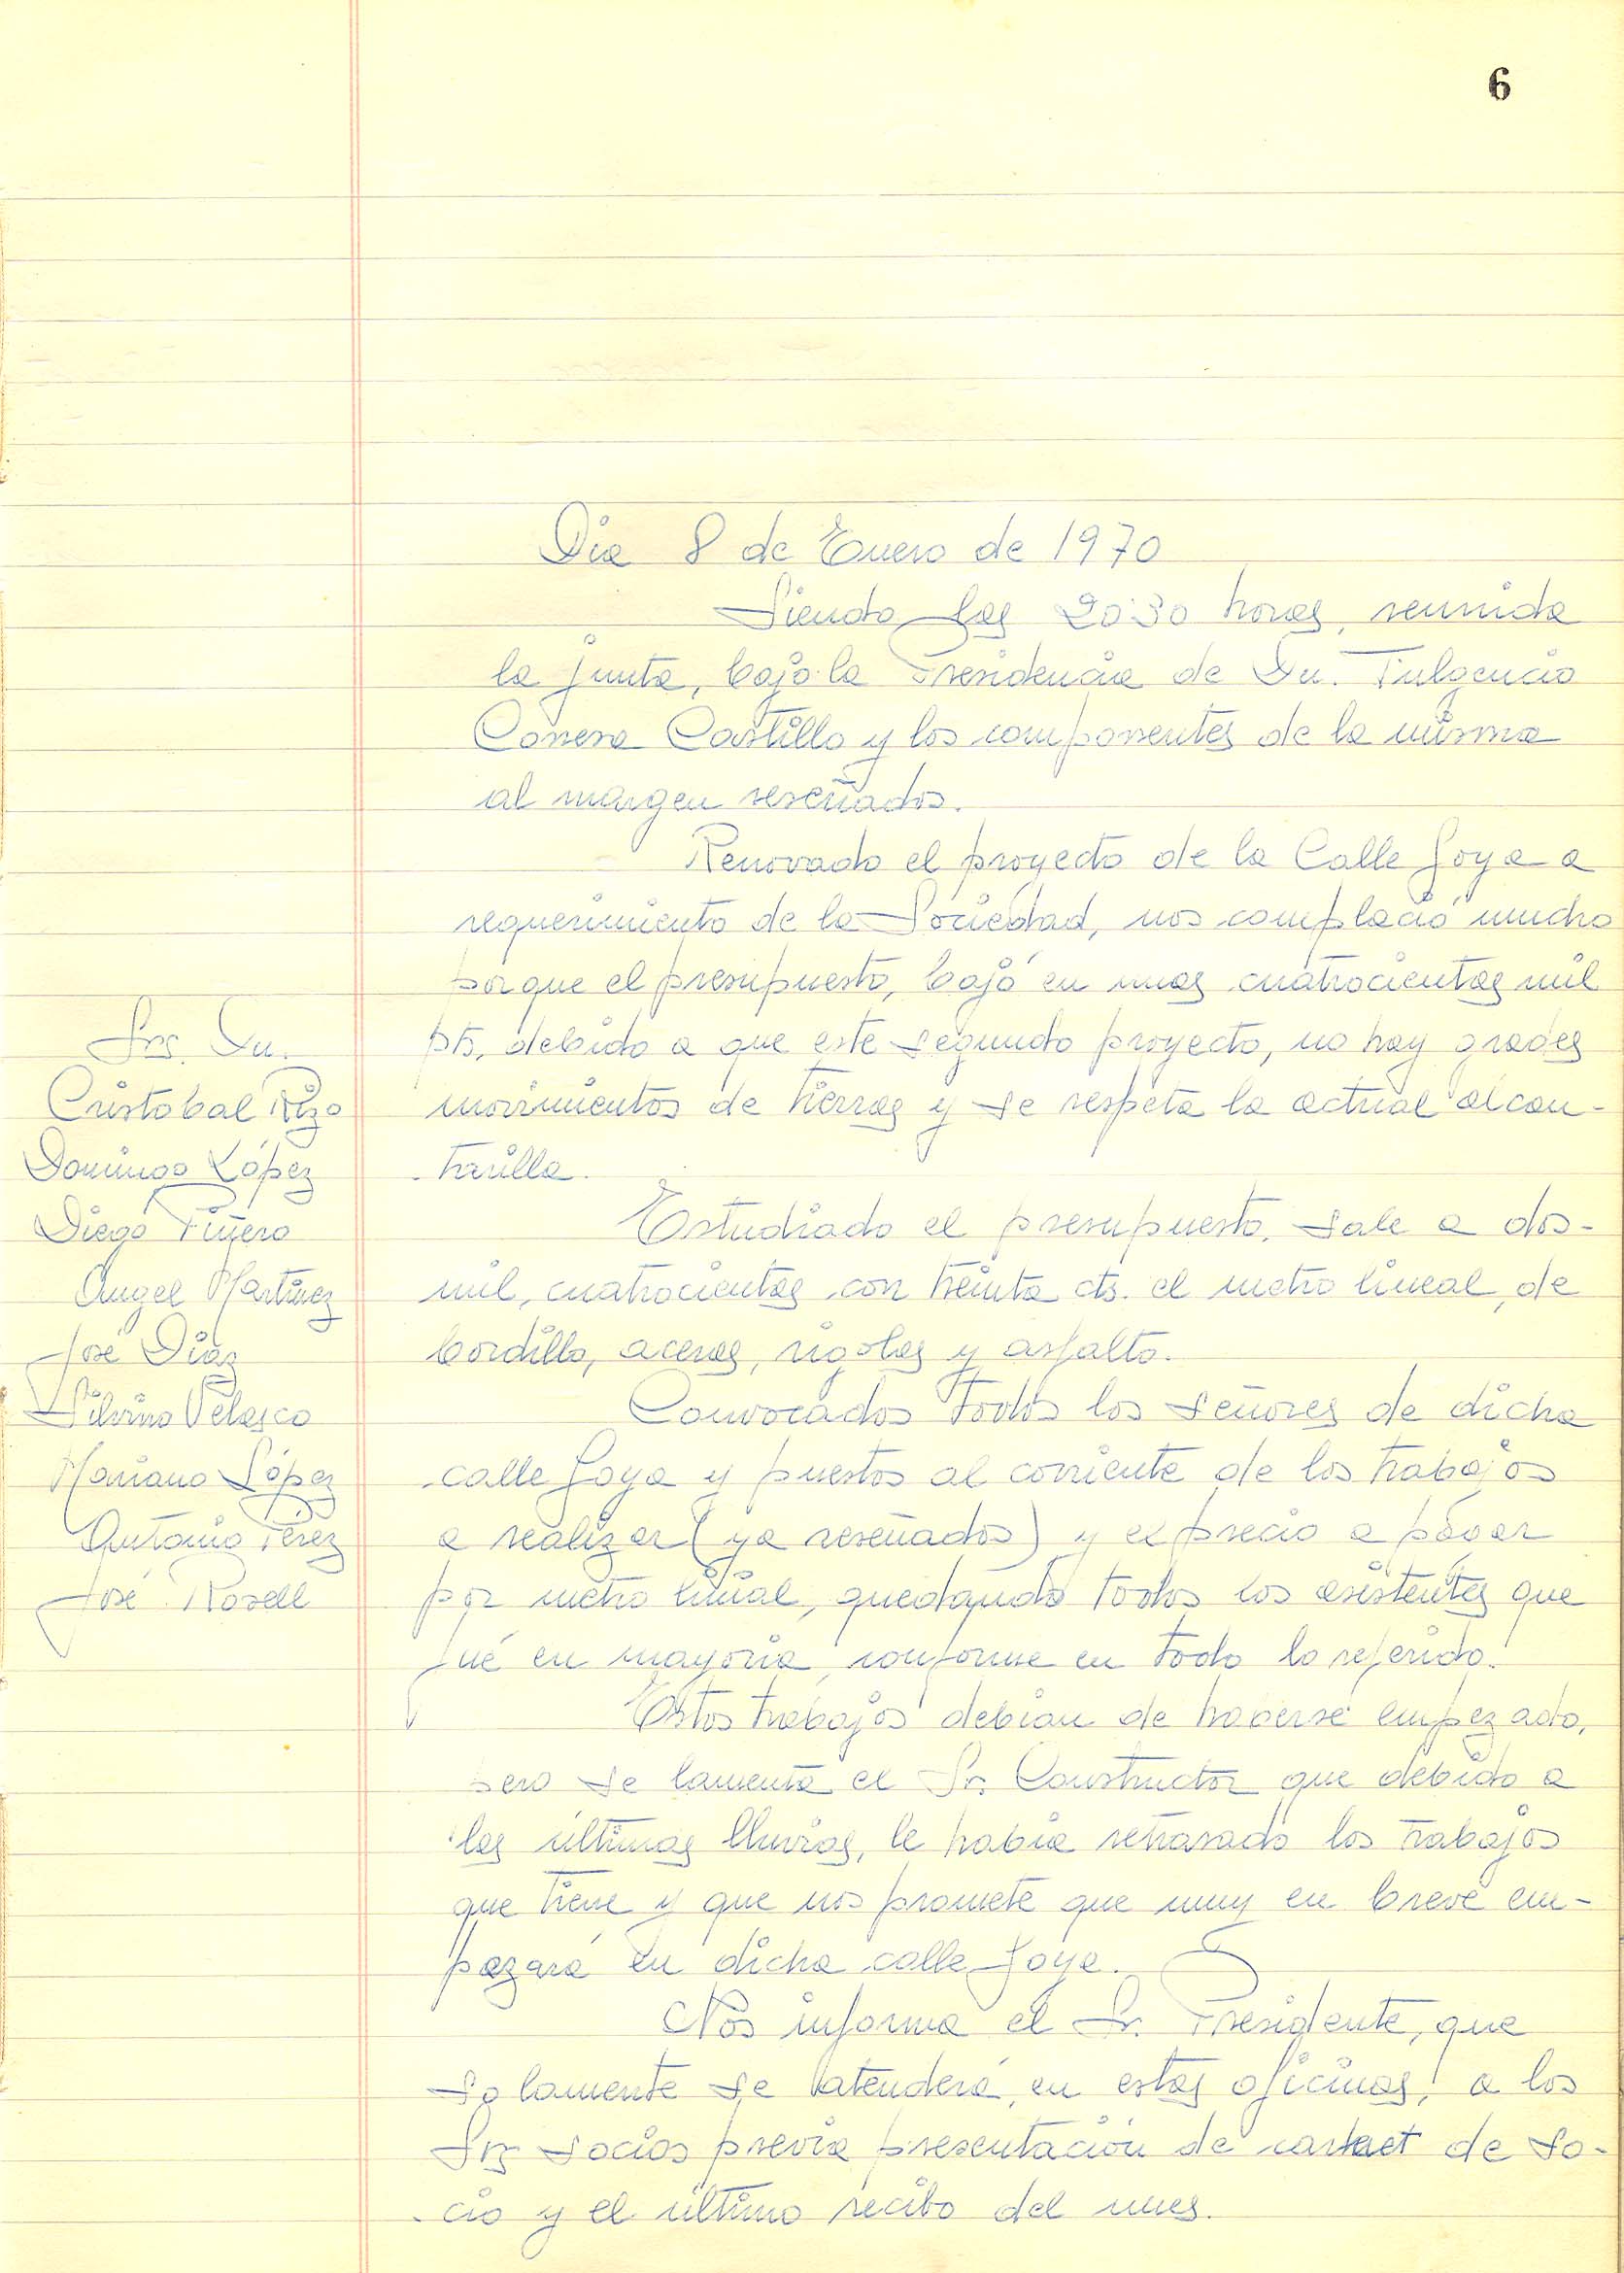 6
Dia 8 de Enero de 1970
Siendo las 20'30 horas, reunida
la junta, bajo la Presidencia de Dn. Fulgencio
Conesa Castillo y los componentes de la misma
al margen reseñados.
Renovado el proyecto de la Calle Goya a
requerimiento de la Sociedad, nos complació mucho
porque el presupuesto, bajó en unas cuatrocientas mil
pts, debido a que este segundo proyecto, no hay grades
movimientos de tierras y se respeta la actual alcan-
tarilla.
Estudiado el presupuesto, sale a dos-
mil, cuatrocientas con treinta cts. el metro lineal, de
bordillo, aceras, rigolas y asfalto.
Convocados todos los señores de dicha
calle Goya y puestos al corriente de los trabajos
a realizar (ya reseñados) y el precio a pagar
por metro lineal, quedando todos los asistentes que
fué en mayoria, conforme en todo lo referido.
Estos trabajos debian de haberse empezado,
pero se lamenta el Sr. Constructor que debido a
las últimas lluvias, le habia retrasado los trabajos
que tiene y que nos promete que muy en breve em-
pezará en dicha calle Goya.
Nos informa el Sr. Presidente, que
solamente se atenderá, en estas oficinas, a los
Srs socios previa presentación de carnet de so-
cio y el último recibo del mes.
Srs. Dn.
Cristobal Rizo
Domingo López
Diego Piñero
Angel Martinez
José Diaz
Silvino Velasco
Mariano López
Antonio Pérez
José Rosell